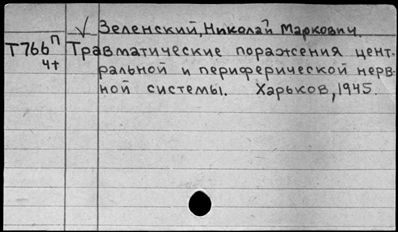 √ Зеленский, Николай Маркович.
Т766П Травматические поражения цент-
ч+ ральной и периферической нерв-
ной системы. Харьков, 1945.